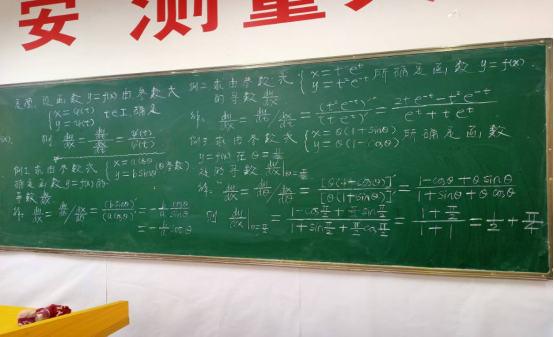 安 测量
定理 设函数 y=f(x) 由参数式
{x=φ(t) y=ψ(t) t∈I 确定
则 dy/dx = (dy/dt)/(dx/dt) = ψ'(t)/φ'(t)
例1 求由参数式 {x=a cosθ y=b sinθ (θ参数)
确定函数 y=f(x) 的
导数
解: dy/dx = dy/dθ / dx/dθ = (b sinθ)'/(a cosθ)' = -b/a cosθ/sinθ
= -b/a cotθ
例2 求由参数式 {x=t e^t y=t²e^-t 所确定函数 y=f(x)
的导数 dy/dx
解: dy/dx = dy/dt / dx/dt = (t²e^-t)'/(t e^t)' = (2t e^-t - t²e^-t)/(e^t + t e^t)
例3 求由参数式 {x=θ(1+sinθ) y=θ(1-cosθ) 所确定函数
y=f(x) 在 θ=π/2
处的导数 dy/dx|θ=π/2
解: dy/dx = dy/dθ / dx/dθ = [θ(1-cosθ)]'/[θ(1+sinθ)]' = (1-cosθ+θ sinθ)/(1+sinθ+θ cosθ)
则 dy/dx|θ=π/2 = (1-cos π/2 + π/2 sin π/2)/(1+sin π/2 + π/2 cos π/2) = (1+π/2)/(1+1) = 1/2 + π/4